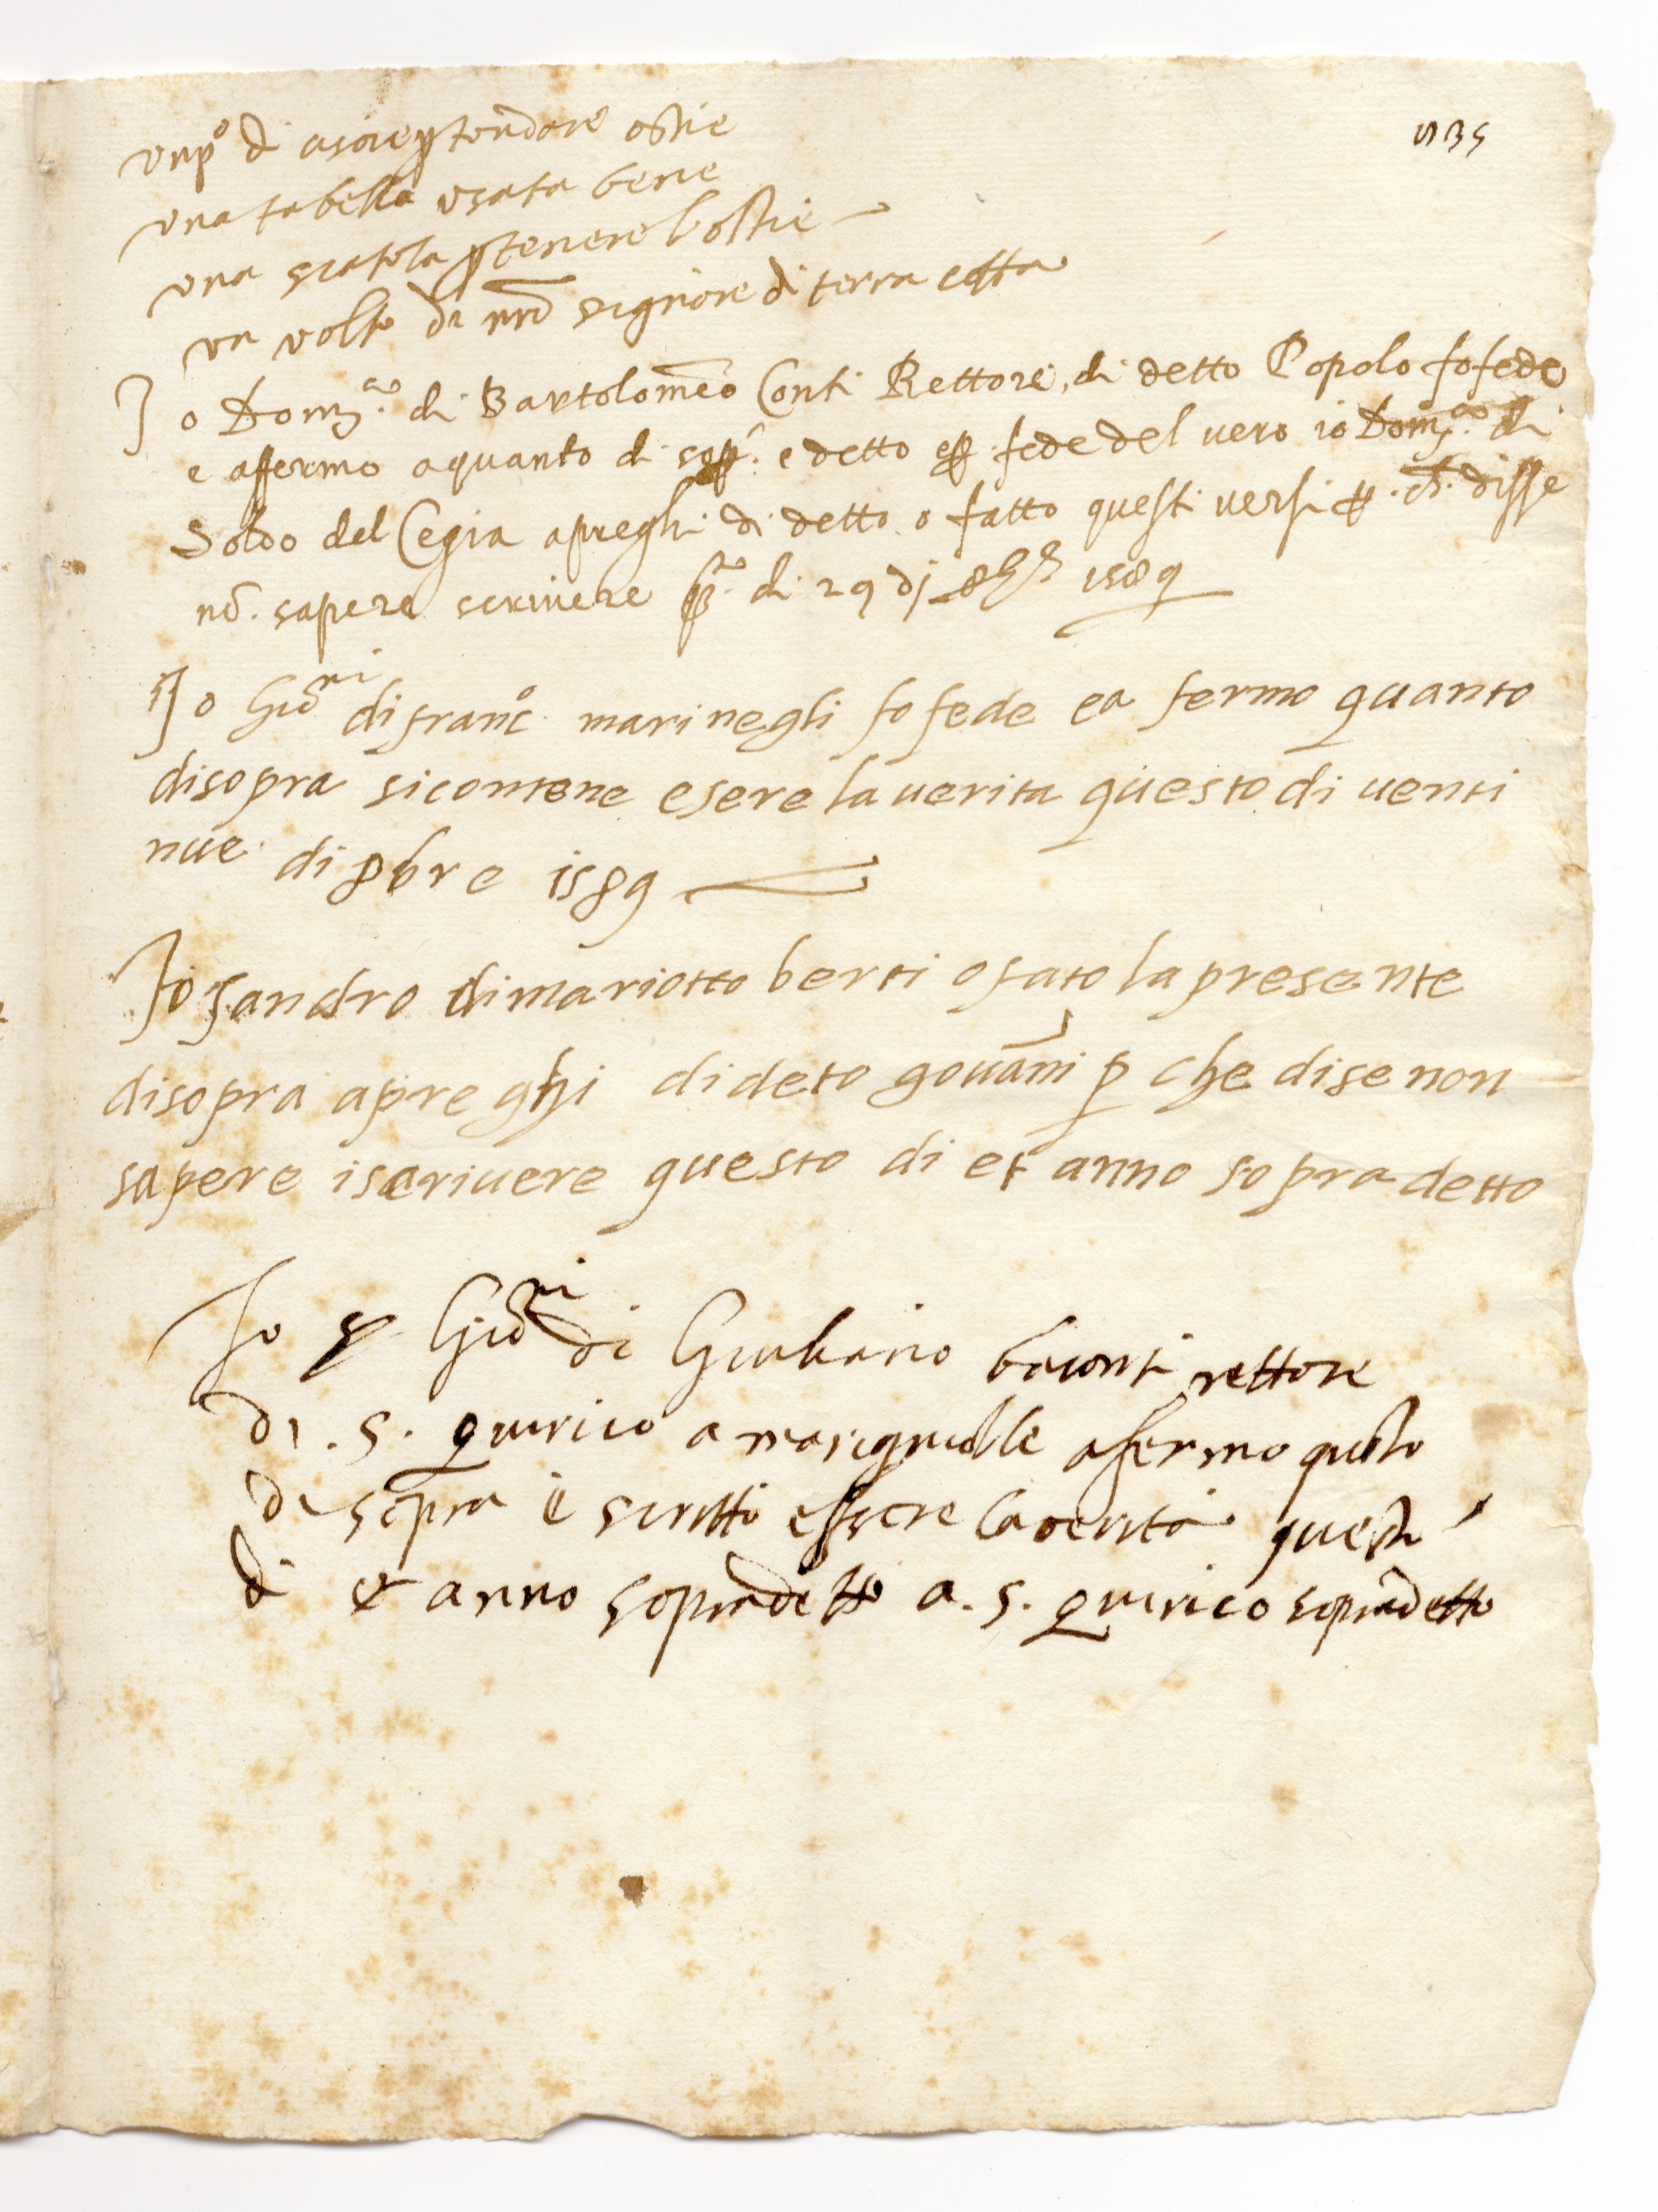 535
un pº di p tondare ostie
una tabella usata bene
una scatola p tenere l ostie
un volto di nrō signiore di terra cotta
Io Domco. di Bartolomeo Conti Rettore, di detto Popolo fo fede
e affermo a quanto di sopra. e detto e p fede del vero io Domco. di
Soldo del Cegia a preghi di detto o fatto questi versi p. ch. disse
nō. sapere scrivere qto. di 29 dj 8bre 1589
Io Giōni di franco marinegli fo fede e a fermo quanto
di sopra si contene esere la verita questo di venti
nue di 8bre 1589
Io sandro di mariotto berti o fato la presente
di sopra a preghi di deto govāni p che dise non
sapere iscrivere questo di et anno sopra detto
Io p Giōni di Giuliano rettore
di . S. quirico a marignolle afermo qūto
di sopra è scritto essere la verità questo
dì et anno sopradetto a. s. quirico sopradetto